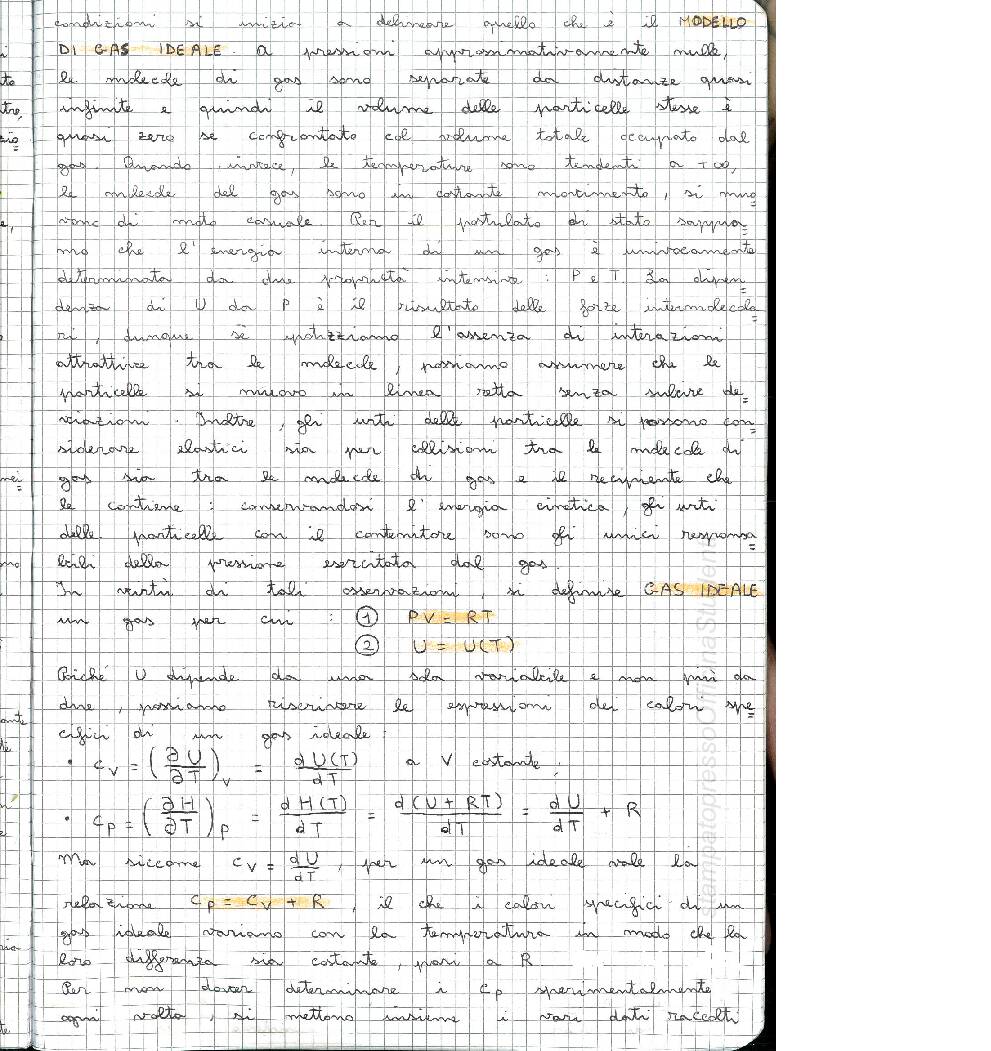 condizioni si inizia a delineare quello che è il MODELLO
DI GAS IDEALE. A pressioni approssimativamente nulle,
le molecole di gas sono separate da distanze quasi
infinite e quindi il volume delle particelle stesse è
quasi zero se confrontato col volume totale occupato dal
gas. Quando invece, le temperature sono tendenti a +∞,
le molecole del gas sono in costante movimento, si muo=
vono di moto casuale. Per il postulato di stato sappia=
mo che l'energia interna di un gas è univocamente
determinata da due proprietà intensive: P e T. La dipen=
denza di U da P è il risultato delle forze intermolecola=
ri, dunque se ipotizziamo l'assenza di interazioni
attrattive tra le molecole, possiamo assumere che le
particelle si muovo in linea retta senza subire de=
viazioni. Inoltre, gli urti delle particelle si possono con=
siderare elastici sia per collisioni tra le molecole di
gas sia tra le molecole di gas e il recipiente che
le contiene: conservandosi l'energia cinetica, gli urti
delle particelle con il contenitore sono gli unici responsa=
bili della pressione esercitata dal gas.
In virtù di tali osservazioni, si definisce GAS IDEALE
un gas per cui : ① PV = RT
② U = U(T)
Poiché U dipende da una sola variabile e non più da
due, possiamo riscrivere le espressioni dei calori spe=
cifici di un gas ideale:
• Cv = (∂U/∂T)v = dU(T)/dT a V costante;
• Cp = (∂H/∂T)p = dH(T)/dT = d(U + RT)/dT = dU/dT + R
Ma siccome Cv = dU/dT, per un gas ideale vale la
relazione Cp = Cv + R, il che i calori specifici di un
gas ideale variano con la temperatura in modo che la
loro differenza sia costante, pari a R
Per non dover determinare i Cp sperimentalmente
ogni volta, si mettono insieme i vari dati raccolti
stampatopressoOfficinaStudenti